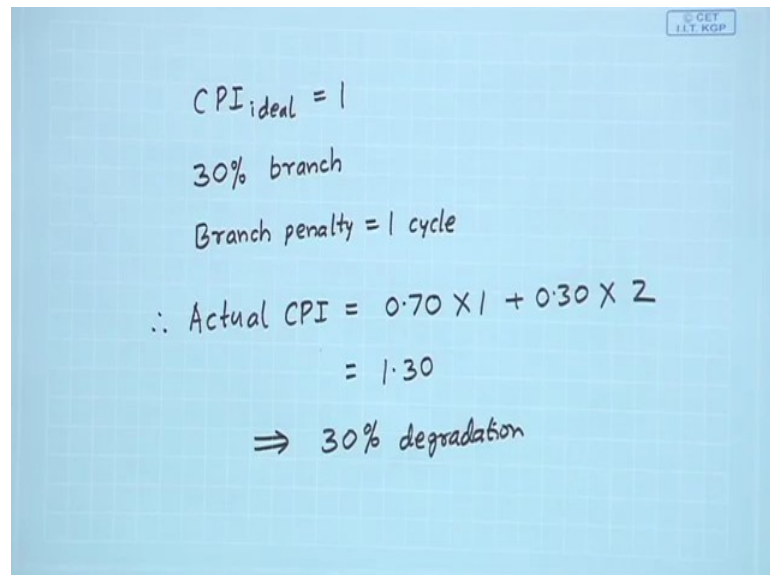 © CET
I.I.T. KGP
CPI ideal = 1
30% branch
Branch penalty = 1 cycle
∴ Actual CPI = 0.70 X 1 + 0.30 X 2
= 1.30
⇒ 30% degradation